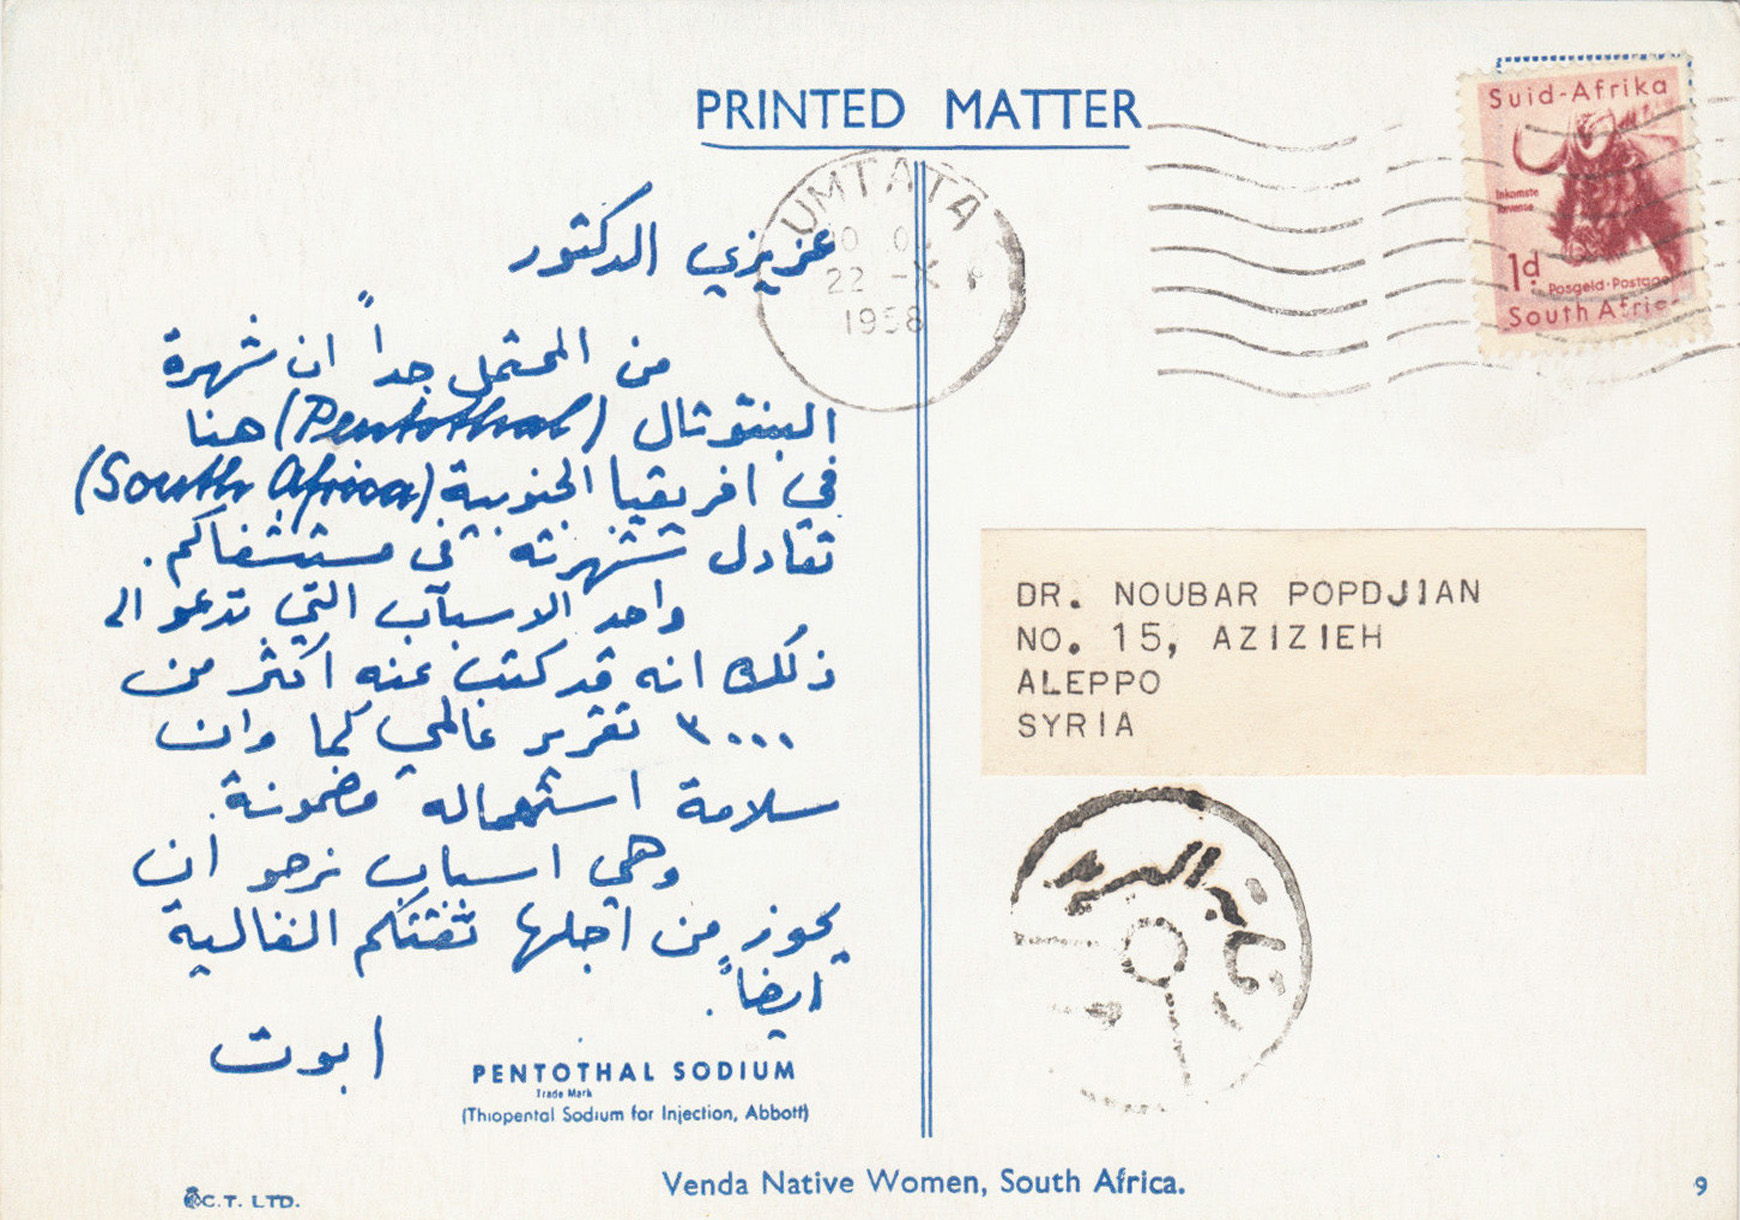 PRINTED MATTER
عزيزي الدكتور
من المحتمل جداً ان شهرة
البنتوثال (Pentothal) هنا
في افريقيا الجنوبية (South Africa)
تعادل شهرته في مستشفاكم.
واحد الاسباب التي تدعو الى
ذلك انه قد كتب عنه اكثر من
٣٠٠٠ تقرير عالمي كما وان
سلامة استعماله مضمونة.
وهي اسباب نرجو ان
يحوز من اجلها ثقتكم الغالية
ايضاً.
ابوت
PENTOTHAL SODIUM
Trade Mark
(Thiopental Sodium for Injection, Abbott)
UMTATA
22 -X
1958
Suid-Afrika
Inkomste
Revenue
1d
Posgeld·Postage
South Africa
DR. NOUBAR POPDJIAN
NO. 15, AZIZIEH
ALEPPO
SYRIA
Venda Native Women, South Africa.
C.T. LTD.
9